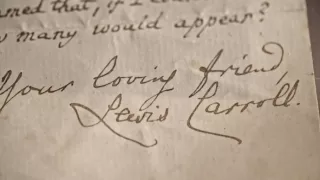 med that, if I
many would appear?
Your loving friend,
Lewis Carroll.